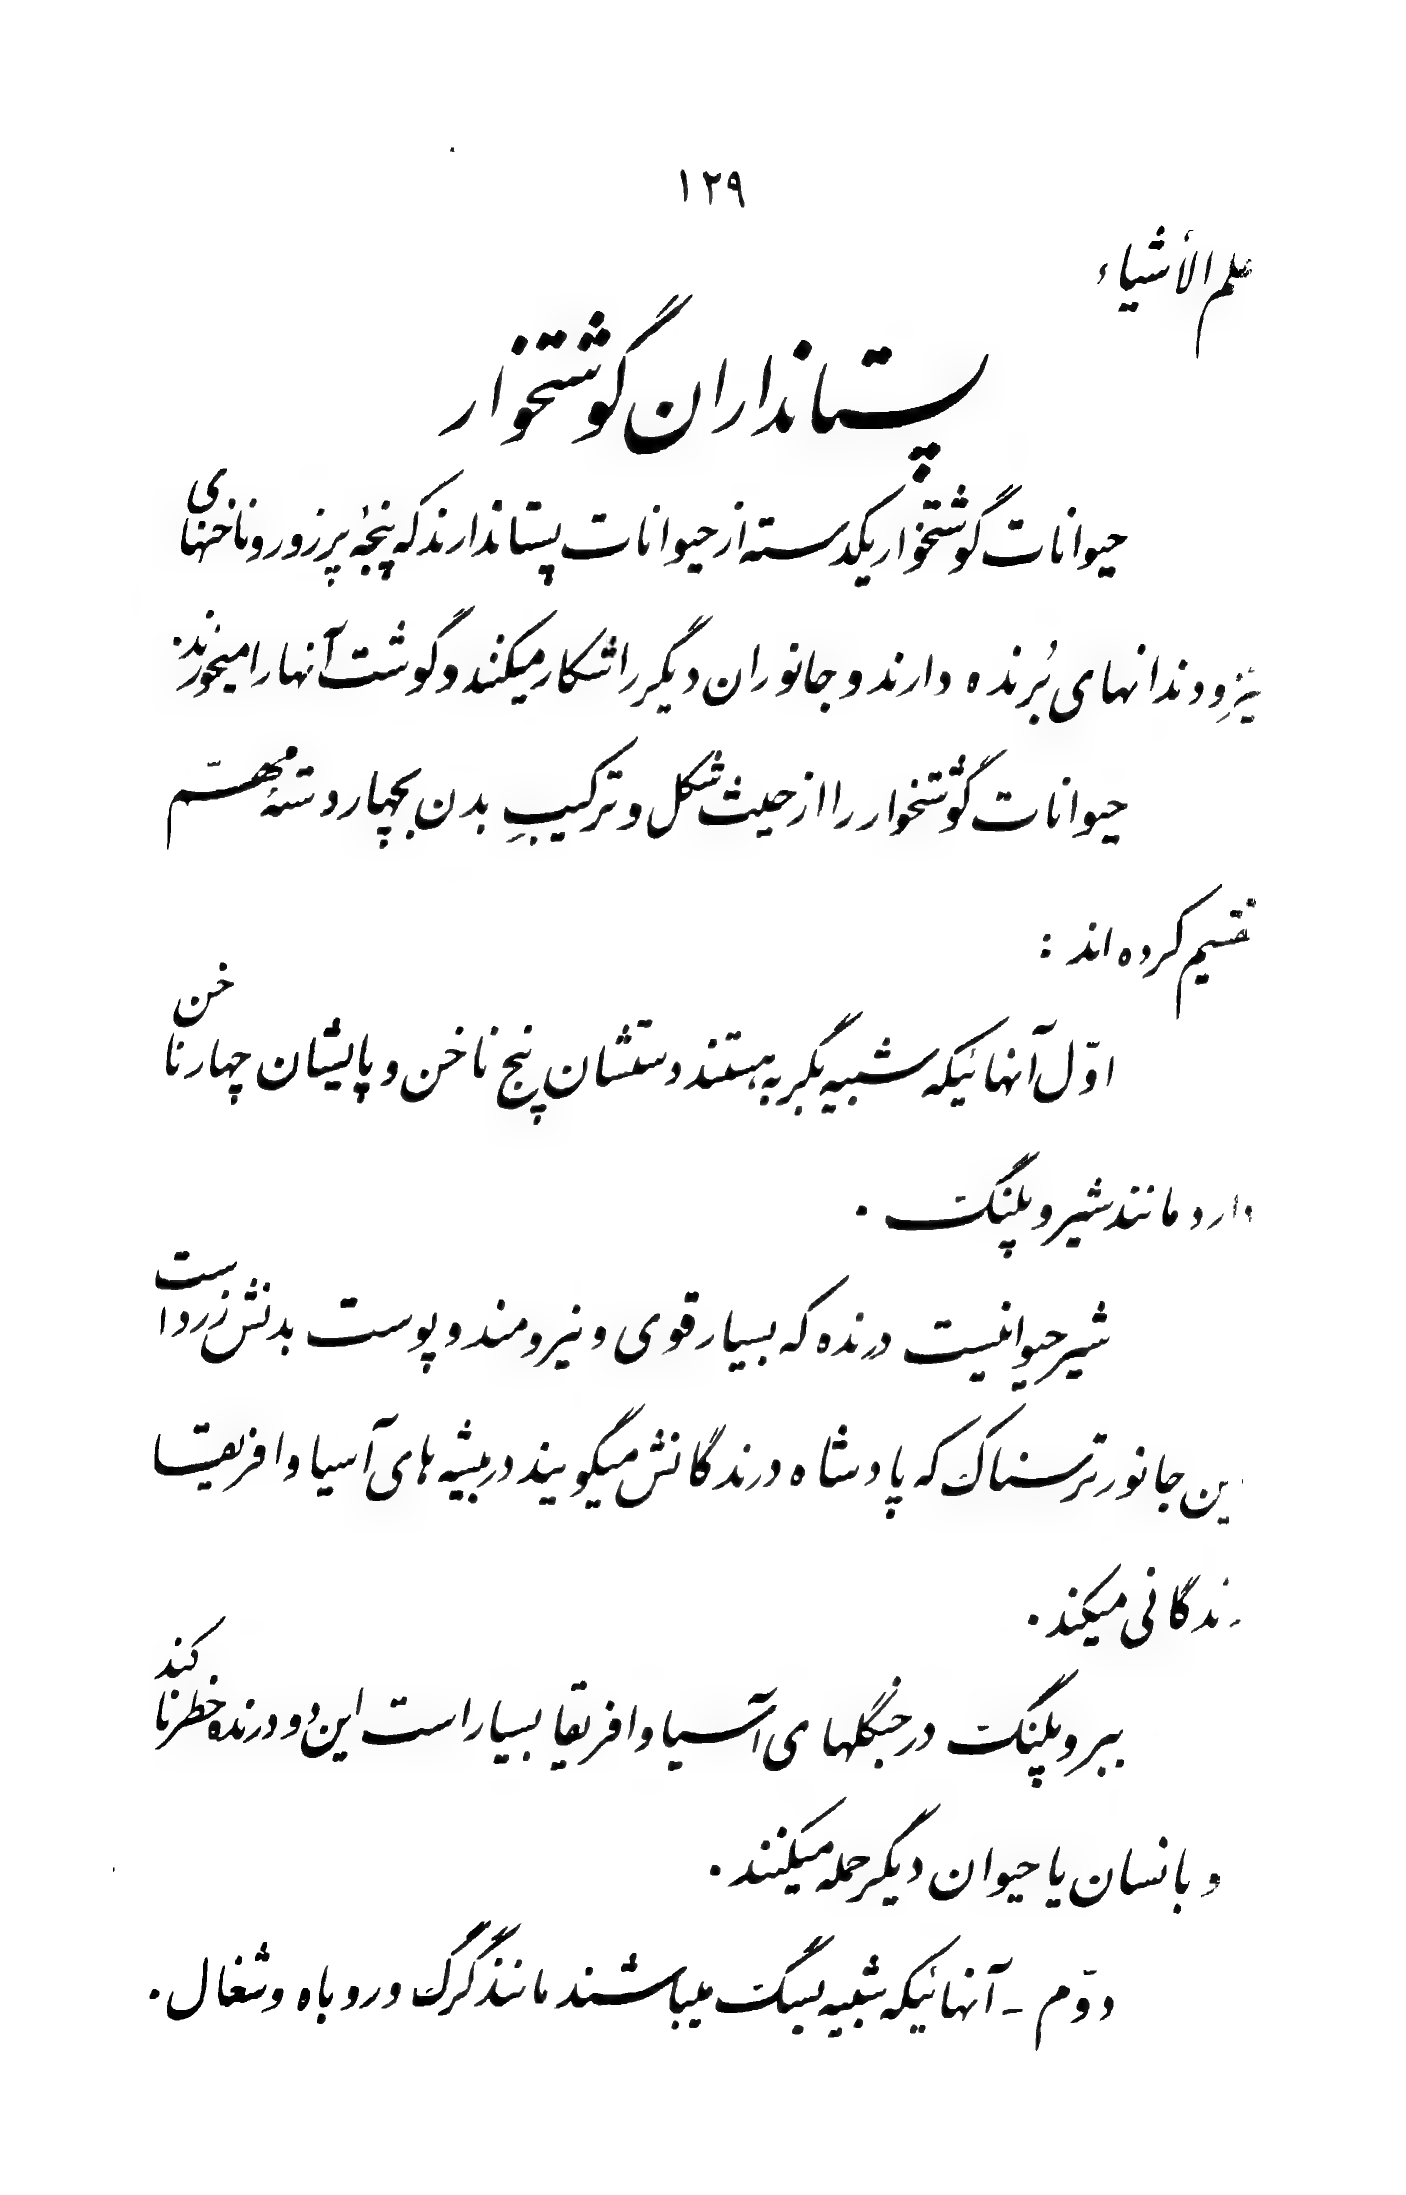 ۱۲۹
علم الأشیاء
پستانداران گوشتخوار
حیوانات گوشتخوار یکدسته از حیوانات پستاندارند که پنجهٔ پرزور و ناخنهای
تیزِ و دندانهای بُرنده دارند و جانوران دیگر را شکار میکنند و گوشت آنها را میخورند.
حیوانات گوشتخوار را از حیث شکل و ترکیبِ بدن بچهار دستهٔ مهمّ
تقسیم کرده اند :
اوّل آنهائیکه شبیه بگربه هستند دستشان پنج ناخن و پایشان چهار ناخن
دارد مانند شیر و پلنگ .
شیر حیوانیست درنده که بسیار قوی و نیرومند و پوست بدنش زرد است
این جانور ترسناک که پادشاه درندگانش میگویند در بیشه های آسیا و افریقا
زندگانی میکند .
ببر و پلنگ در جنگلهای آسیا و افریقا بسیار است این دو درنده خطرناکند
و بانسان یا حیوان دیگر حمله میکنند .
دوّم - آنهائیکه شبیه بسگ میباشند مانند گرگ و روباه و شغال .